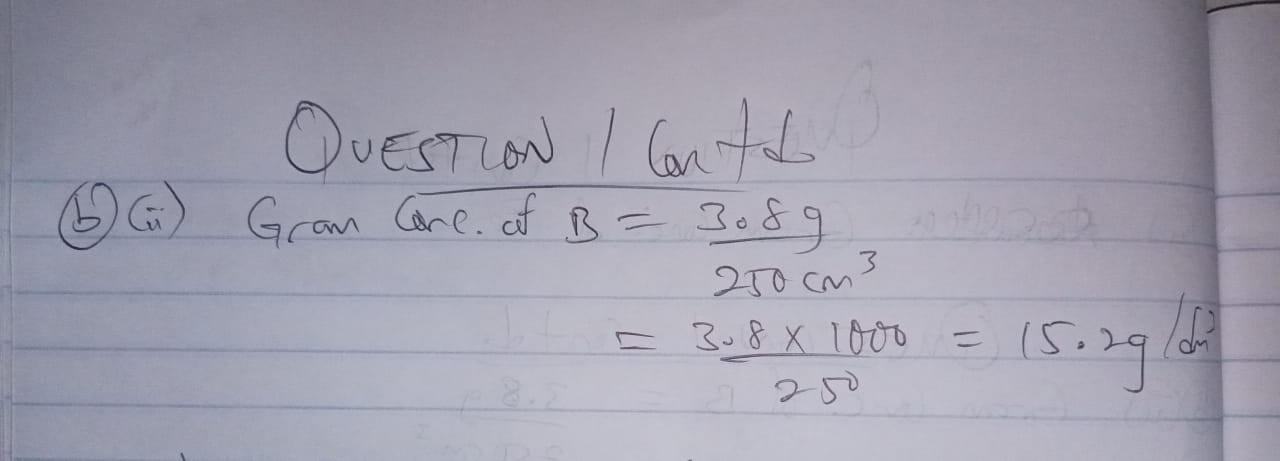 QUESTION 1 Contd
(b)(ii) Gram Conc. of B = 3.8g
250 cm³
= 3.8 x 1000 = 15.2g/dm³
250